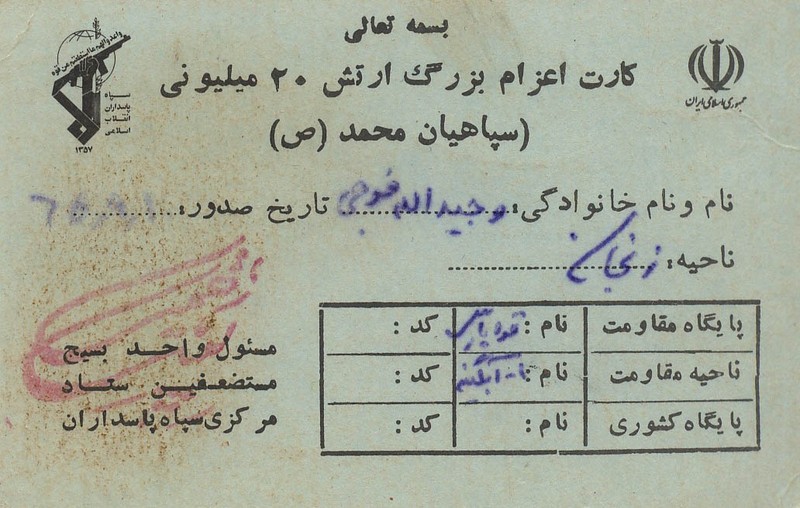 بسمه تعالی
کارت اعزام بزرگ ارتش ۲۰ میلیونی
(سپاهیان محمد (ص)
جمهوری اسلامی ایران
سپاه
پاسداران
انقلاب
اسلامی
۱۳۵۷
نام و نام خانوادگی: وحیداله تاریخ صدور:
ناحیه: زنجان
پایگاه مقاومت نام: کد:
ناحیه مقاومت نام: کد:
پایگاه کشوری نام: کد:
مسئول واحد بسیج
مستضعفین ستاد
مرکزی سپاه پاسداران